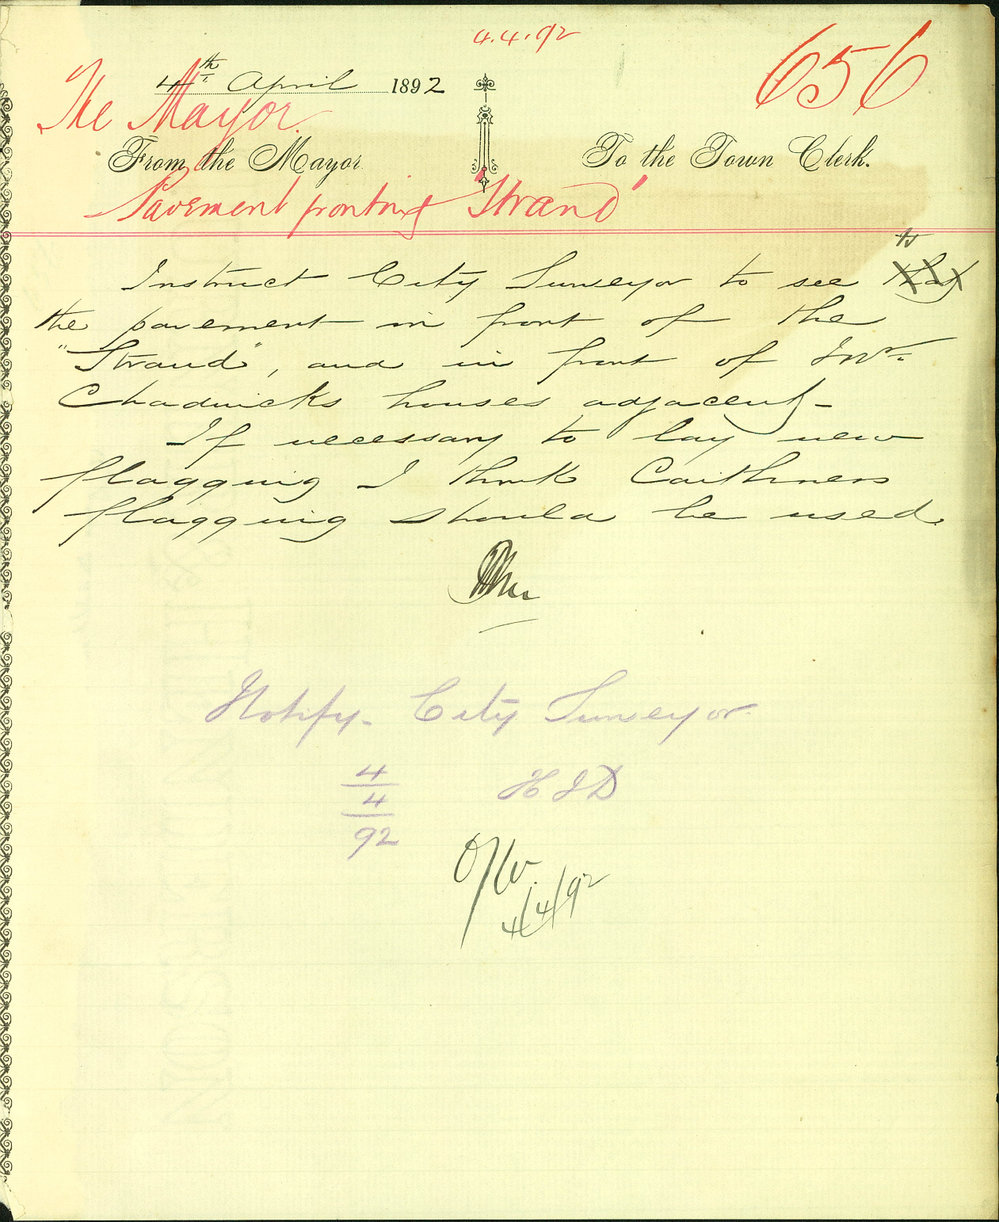 4.4.92
656
4th April 1892
The Mayor
From the Mayor To the Town Clerk.
Pavement fronting "Strand"
Instruct City Surveyor to see to
the pavement in front of the
"Strand", and in front of
Chadwicks houses adjacent-
If necessary to lay new
flagging I think Caithness
flagging should be used.
Notify City Surveyor
4 HJD
4
92
4/4/92